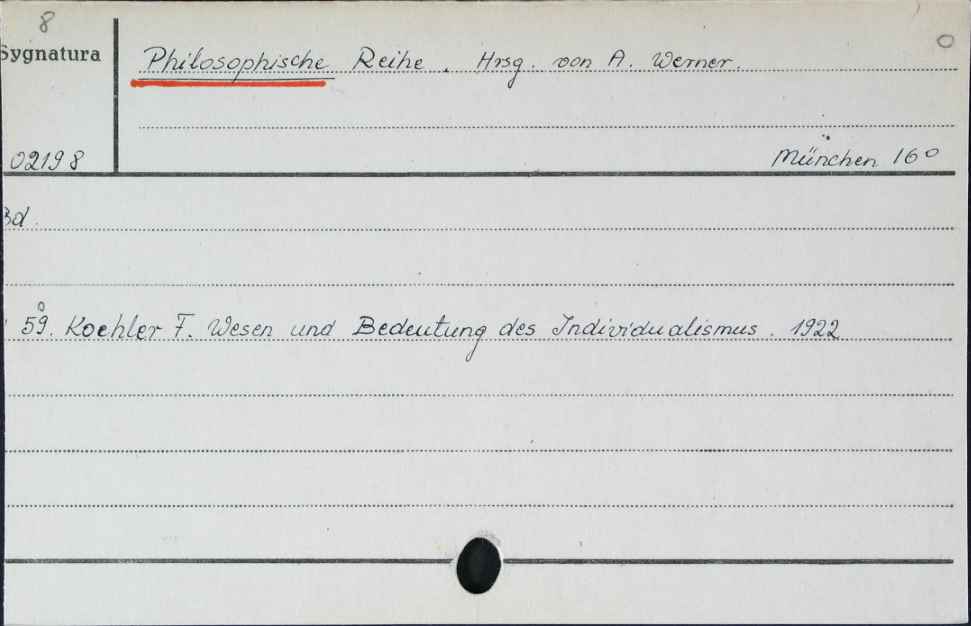 8
Sygnatura
Philosophische Reihe. Hrsg. von A. Werner.
O
02198
München 16°
Bd.
59. Koehler F. Wesen und Bedeutung des Individualismus. 1922